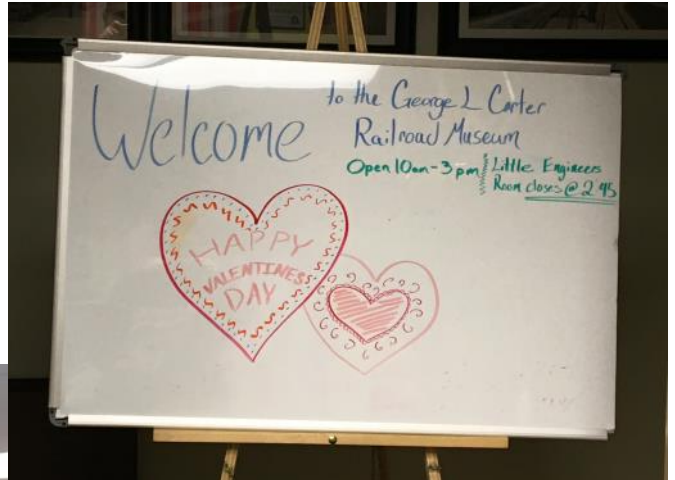 Welcome
to the George L Carter
Railroad Museum
Open 10am-3pm
Little Engineers
Room closes @ 2 45
HAPPY
VALENTINESS
DAY